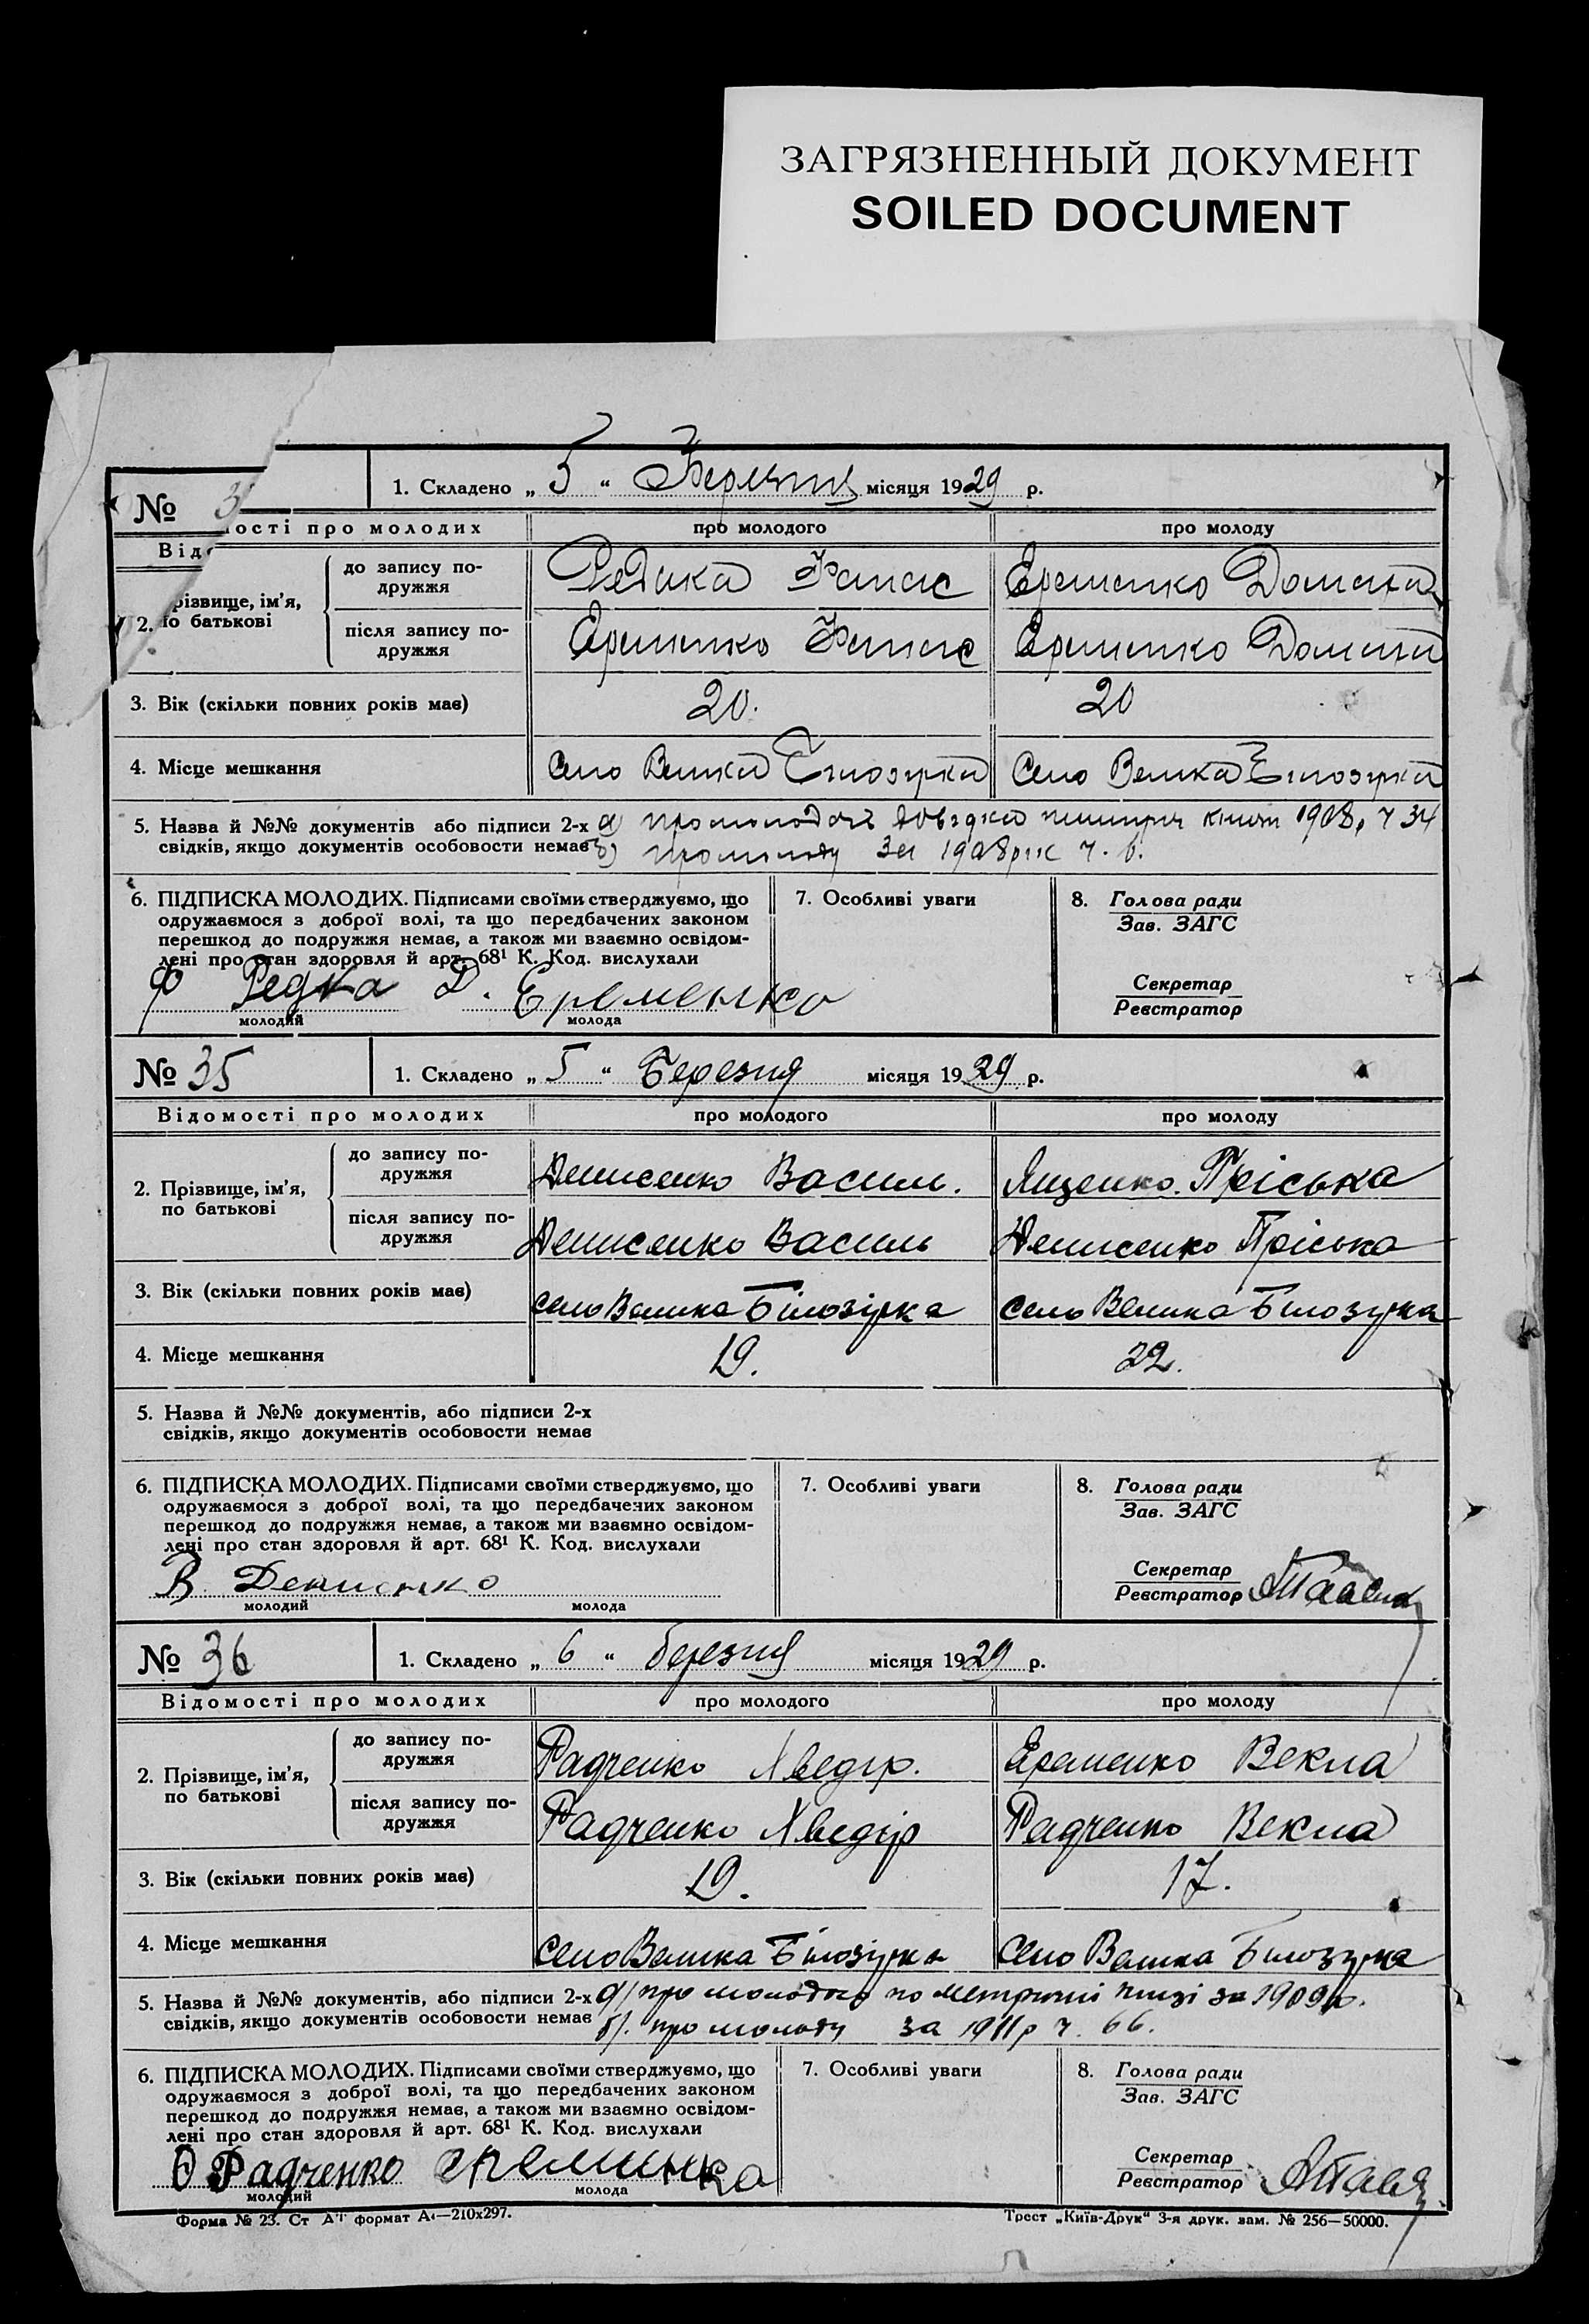 ЗАГРЯЗНЕННЫЙ ДОКУМЕНТ
SOILED DOCUMENT
№ 3
1. Складено „ 5 “ Березня місяця 1929 р.
Відо ості про молодих
про молодого
про молоду
2. різвище, ім'я, по батькові
до запису подружжя
Редика Фанас
Еременко Домаха
після запису подружжя
Еременко Фанас
Еременко Домаха
3. Вік (скільки повних років має)
20.
20
4. Місце мешкання
Село Велика Білозірка
Село Велика Білозірка
5. Назва й №№ документів або підписи 2-х а) про молодого довідка книги 1908, ч 34
свідків, якщо документів особовости немає б) про молоду за 1908 рік ч. 6.
6. ПІДПИСКА МОЛОДИХ. Підписами своїми стверджуємо, що
одружаємося з доброї волі, та що передбачених законом
перешкод до подружжя немає, а також ми взаємно освідом-
лені про стан здоровля й арт. 68¹ К. Код. вислухали
Ф Редка Д. Еременко
молодий
молода
7. Особливі уваги
8. Голова ради
Зав. ЗАГС
Секретар
Реєстратор
№ 35
1. Складено „ 5 “ Березня місяця 1929 р.
Відомості про молодих
про молодого
про молоду
2. Прізвище, ім'я,
по батькові
до запису по-
дружжя
Денисенко Василь.
Ященко Пріська
після запису по-
дружжя
Денисенко Василь
Денисенко Пріська
3. Вік (скільки повних років має)
село Велика Білозірка
село Велика Білозурка
4. Місце мешкання
19.
22.
5. Назва й №№ документів, або підписи 2-х
свідків, якщо документів особовости немає
6. ПІДПИСКА МОЛОДИХ. Підписами своїми стверджуємо, що
одружаємося з доброї волі, та що передбачених законом
перешкод до подружжя немає, а також ми взаємно освідом-
лені про стан здоровля й арт. 68¹ К. Код. вислухали
В. Денисенко
молодий
молода
7. Особливі уваги
8. Голова ради
Зав. ЗАГС
Секретар
Реєстратор
№ 36
1. Складено „ 6 “ березня місяця 1929 р.
Відомості про молодих
про молодого
про молоду
2. Прізвище, ім'я,
по батькові
до запису по-
дружжя
Радченко Хведір.
Еременко Векла
після запису по-
дружжя
Радченко Хведір
Радченко Векла
3. Вік (скільки повних років має)
19.
17.
4. Місце мешкання
село Велика Білозірка
село Велика Білозурка
5. Назва й №№ документів, або підписи 2-х а) про молодого по метричній книзі за 1909 р.
свідків, якщо документів особовости немає б). про молоду за 1911 р ч. 66.
6. ПІДПИСКА МОЛОДИХ. Підписами своїми стверджуємо, що
одружаємося з доброї волі, та що передбачених законом
перешкод до подружжя немає, а також ми взаємно освідом-
лені про стан здоровля й арт. 68¹ К. Код. вислухали
Ѳ Радченко
молодий
молода
7. Особливі уваги
8. Голова ради
Зав. ЗАГС
Секретар
Реєстратор
Форма № 23. Ст АТ формат А4—210х297.
Трест „Київ-Друк“ 3-я друк. зам. № 256—50000.